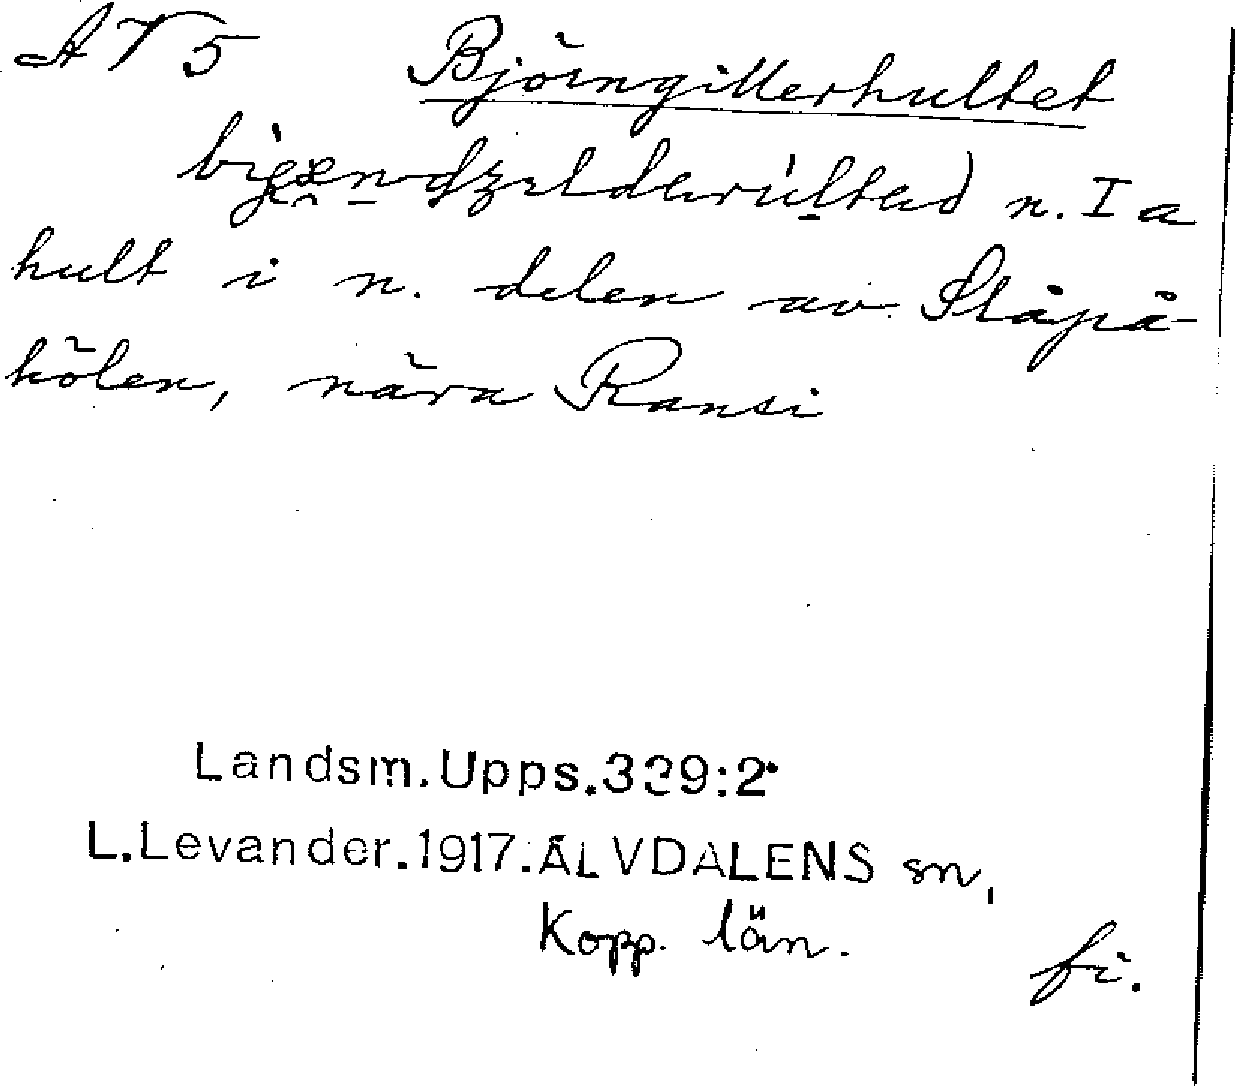 AT5 Björngillerhultet
n. I a
hult i n. delen av Slåpå-
hölen, nära Ransi
Landsm.Upps.339:2
L.Levander.1917.ÄLVDALENS sn,
Kopp. län.
fi.